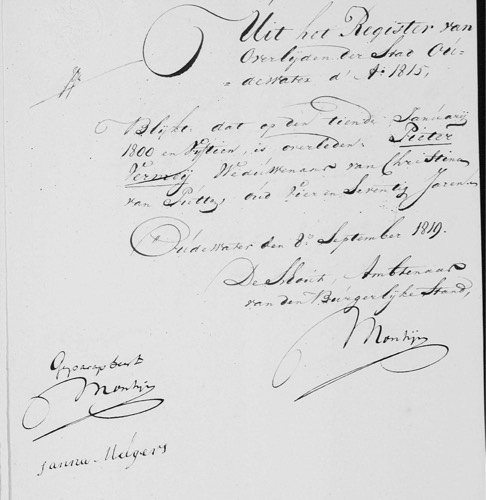 Uit het Register van
Overlyden der Stad Ou-
dewater d' Ao 1815,
Blykt dat op den tiende January
1800 en Vyftien, is overleden Pieter
Vermeij Weduwenaar van Christina
van oud Vier en Seventig Jaren.
Oudewater den 8 September 1819.
De Schout, Ambtenaar
van den Burgerlyke Stand,
Montijn
Geparapheert
Montijn
Janna Meijers